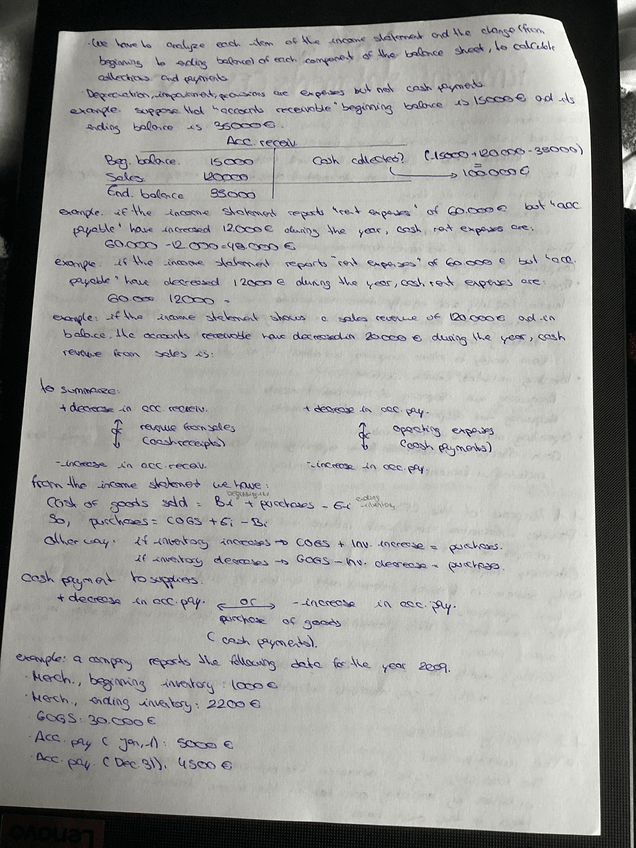 ·We have to analyze each item of the income statement and the change (from
beginning to ending balance) of each component of the balance sheet, to calculate
collections and payments
Depreciation, impairment, provisions are expenses but not cash payments.
example: suppose that "accounts receivable" beginning balance is 15000€ and its
ending balance is 35000€.
Acc. receiv.
Beg. balance. 15000 Cash collected? (15000+120000-35000)
Sales 120000 = 100.000€
End. balance 35000
example: if the income statement reports "rent expenses" of 60.000€ but "acc
payable" have increased 12000€ during the year, cash rent expenses are:
60.000 - 12.000=48.000€
example: if the income statement reports "rent expenses" of 60.000€ but "acc.
payable" have decreased 12000€ during the year, cash rent expenses are:
60.000 12000 =
example: if the income statement shows a sales revenue of 120.000€ and in
balance, the accounts receivable have decreased in 20.000€ during the year, cash
revenue from sales is:
to summarize:
+decrease in acc. receiv. +decrease in acc. pay.
or revenue from sales or operating expenses
(cash receipts) (cash payments)
-increase in acc. receiv. -increase in acc. pay.
from the income statement we have:
beginning inv. ending inventory
Cost of goods sold = Bi + purchases - Ei
So, purchases = COGS + Ei - Bi
other way: if inventory increases → COGS + Inv. increase = purchases.
if inventory decreases → COGS - Inv. decrease = purchases.
Cash payment to suppliers.
+ decrease in acc. pay. or - increase in acc. pay.
purchase of goods
(cash payments).
example: a company reports the following data for the year 2009.
·Merch., beginning inventory: 1000€
·Merch., ending inventory: 2200€
·COGS: 30.000€
·Acc. pay (Jan, 1): 5000€
·Acc. pay. (Dec 31): 4500€
Lenovo